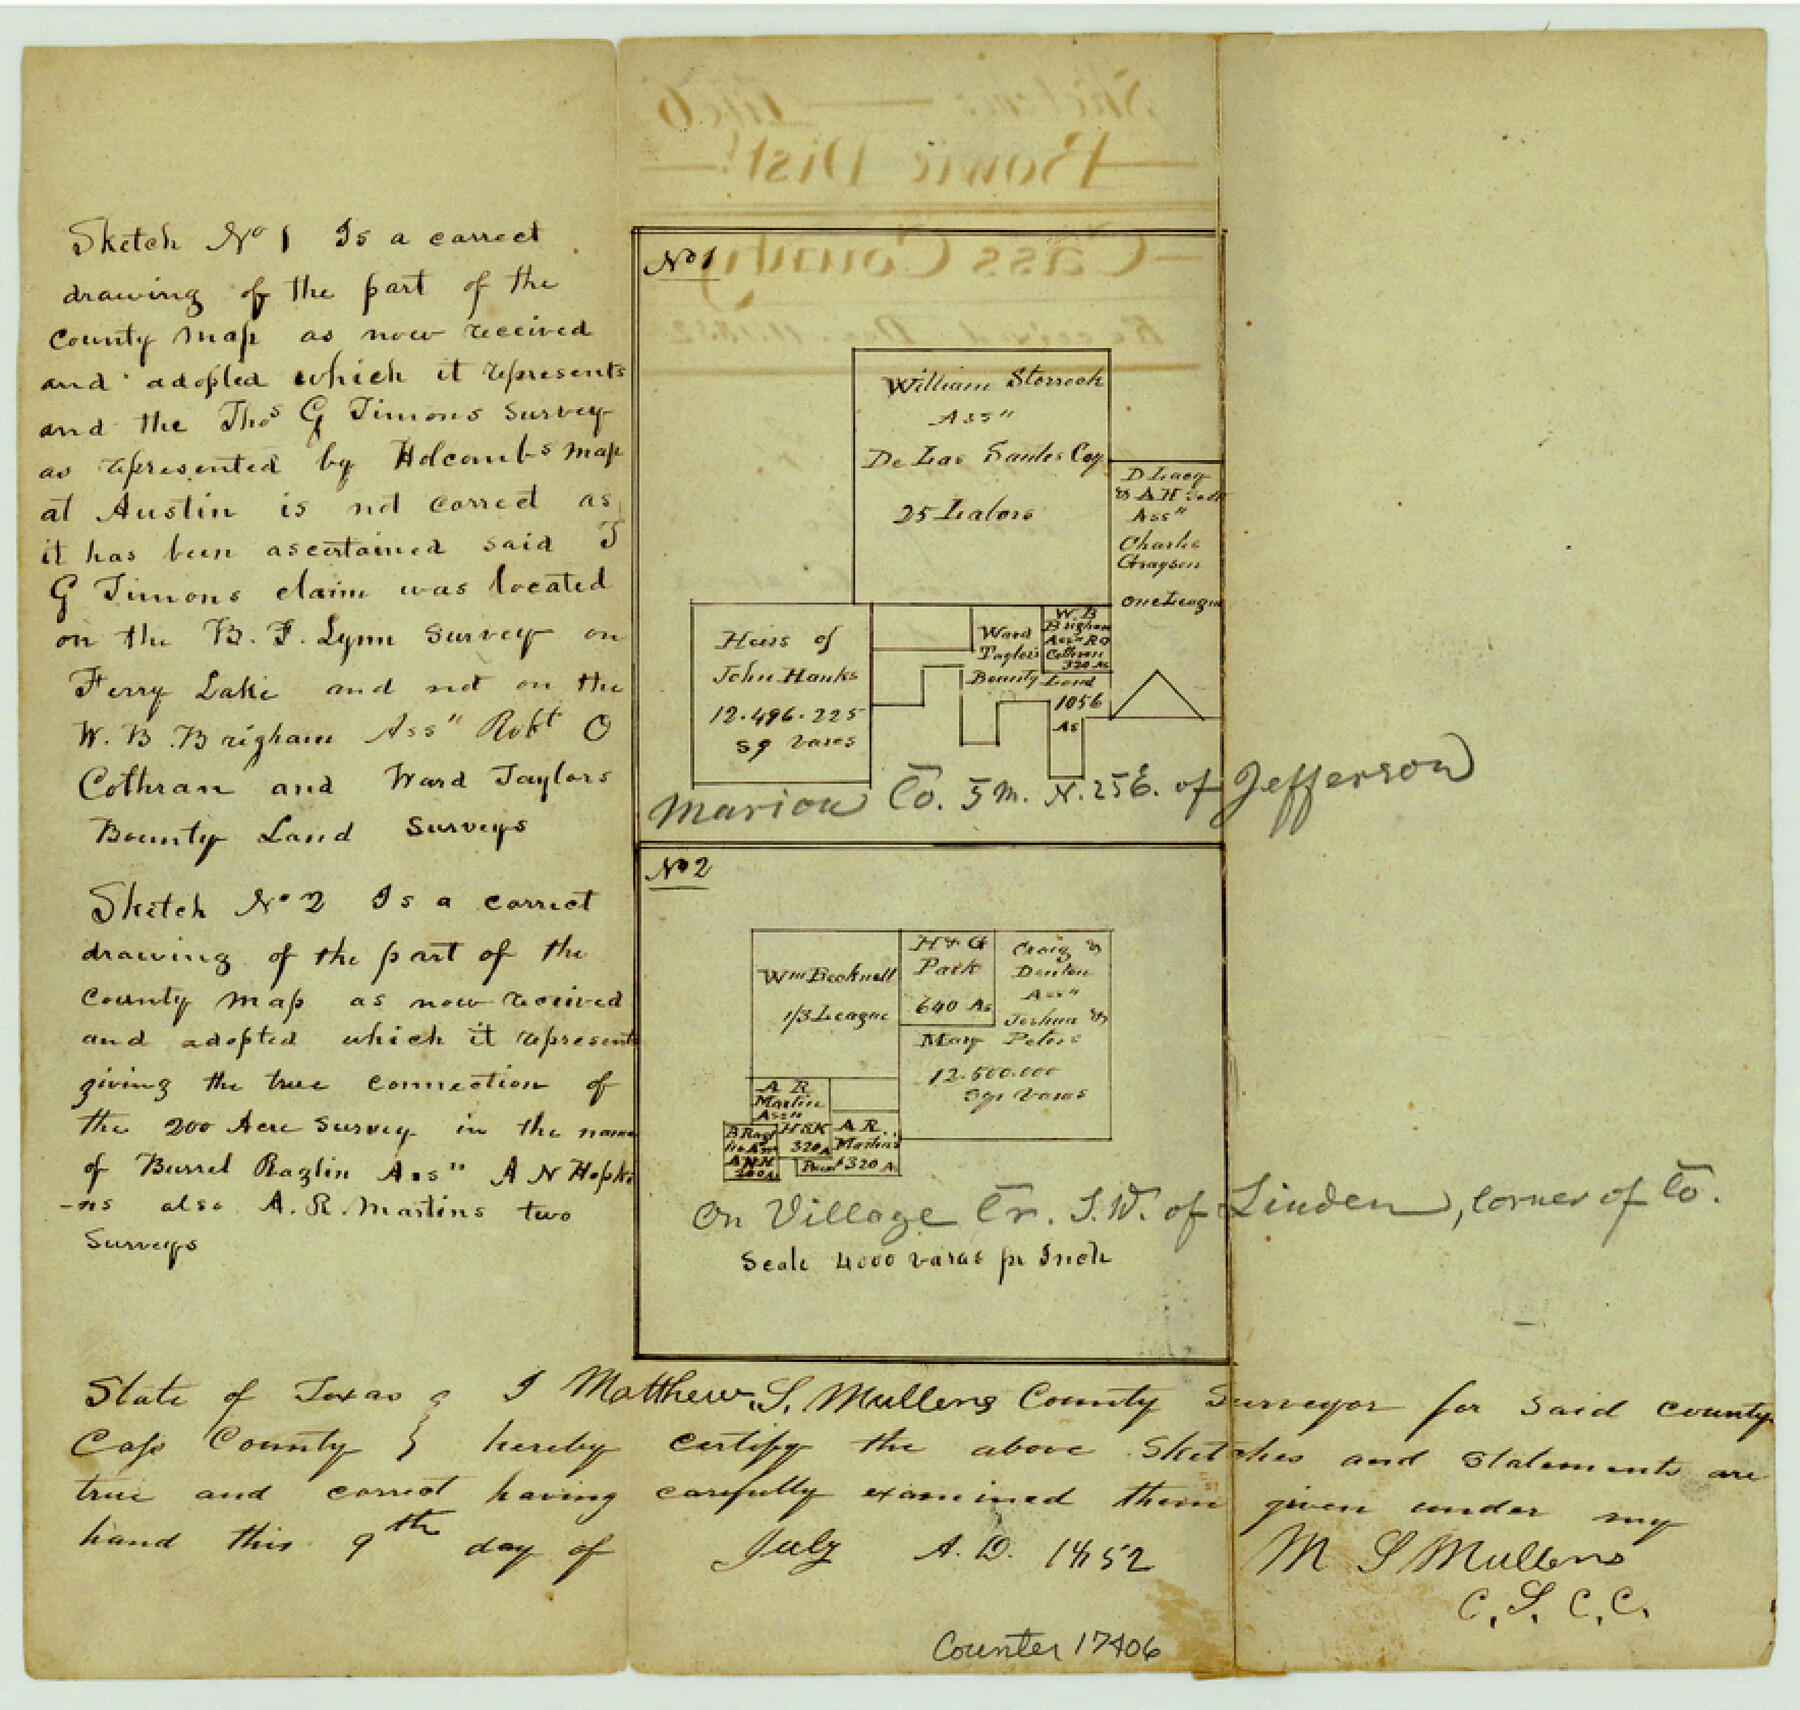 Sketch No 1 Is a correct
drawing of the part of the
County map as now received
and adopted which it represents
and the Thos G Timons survey
as represented by Holcombs map
at Austin is not correct as
it has been ascertained said T
G Timons claim was located
on the B. F. Lynn survey on
Ferry Lake and not on the
W. B. Brigham Ass" Robt O
Cothran and Ward Taylors
Bounty Land Surveys
Sketch No 2 Is a correct
drawing of the part of the
County map as now received
and adopted which it represents
giving the true connection of
the 200 Acre survey in the name
of Burrel Raglin Ass" A N Hopki
-ns also A. R. Martins two
Surveys
No 1
William Storrook
Ass"
De Las Santos Coy
25 Labors
D Lacy
& A H
Ass"
Charles
Grayson
one League
Heirs of
John Hanks
12.496.225
sq varas
Ward
Taylors
Bounty Land
1056
As
W. B
Brigham
Ass" R O
Cothran
320 As
Marion Co. 5 m. N. 25 E. of Jefferson
No 2
Wm Becknell
1/3 League
H & G
Park
640 As
Craig &
Denton
Ass"
Joshua &
Mary Peters
12.500.000
sqr varas
A R
Martin
Ass"
H & K
320 A
B Rag
lin Ass
A N H
200 A
A R.
Martins
320 A
On Village Cr. S.W. of Linden, corner of Co.
Scale 4000 varas pr Inch
State of Texas } I Matthew. S. Mullens County Surveyor for said county
Cass County } hereby certify the above Sketches and statements are
true and correct having carefully examined them given under my
hand this 9th day of July A. D. 1852 M S Mullens
C. S. C. C.
Counter 17406